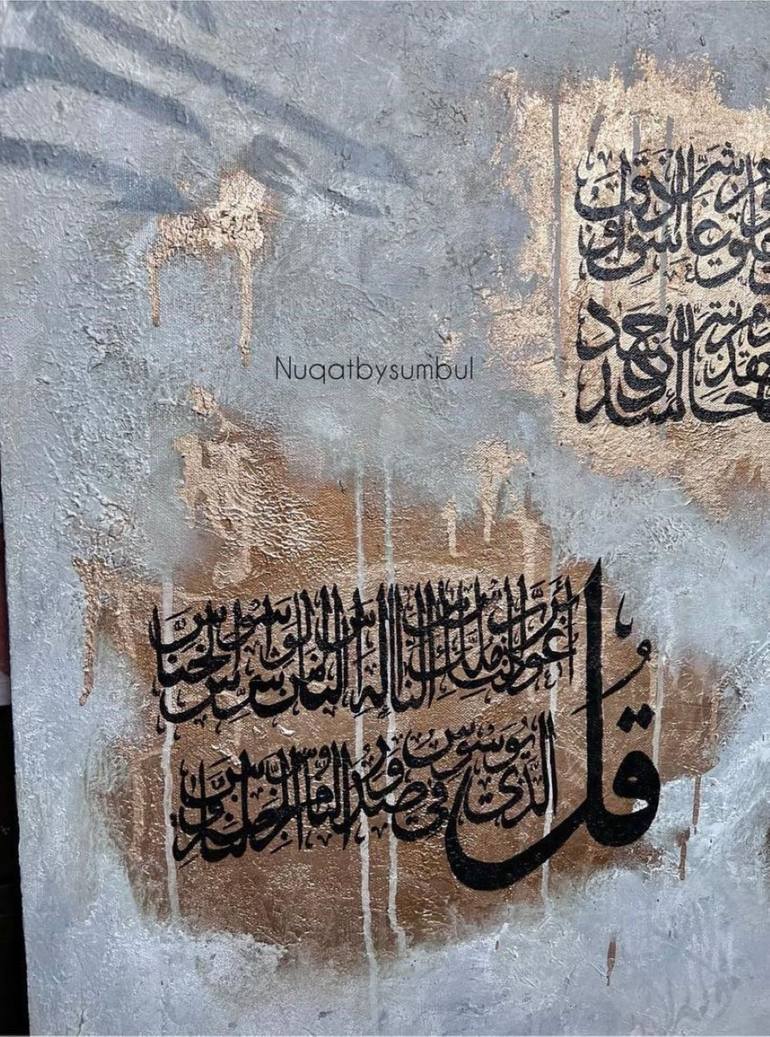 شر غاسق إذا وقب
حاسد إذا حسد
Nuqatbysumbul
قُل أعوذ برب الناس ملك الناس إله الناس من شر الوسواس الخناس
الذي يوسوس في صدور الناس من الجنة والناس